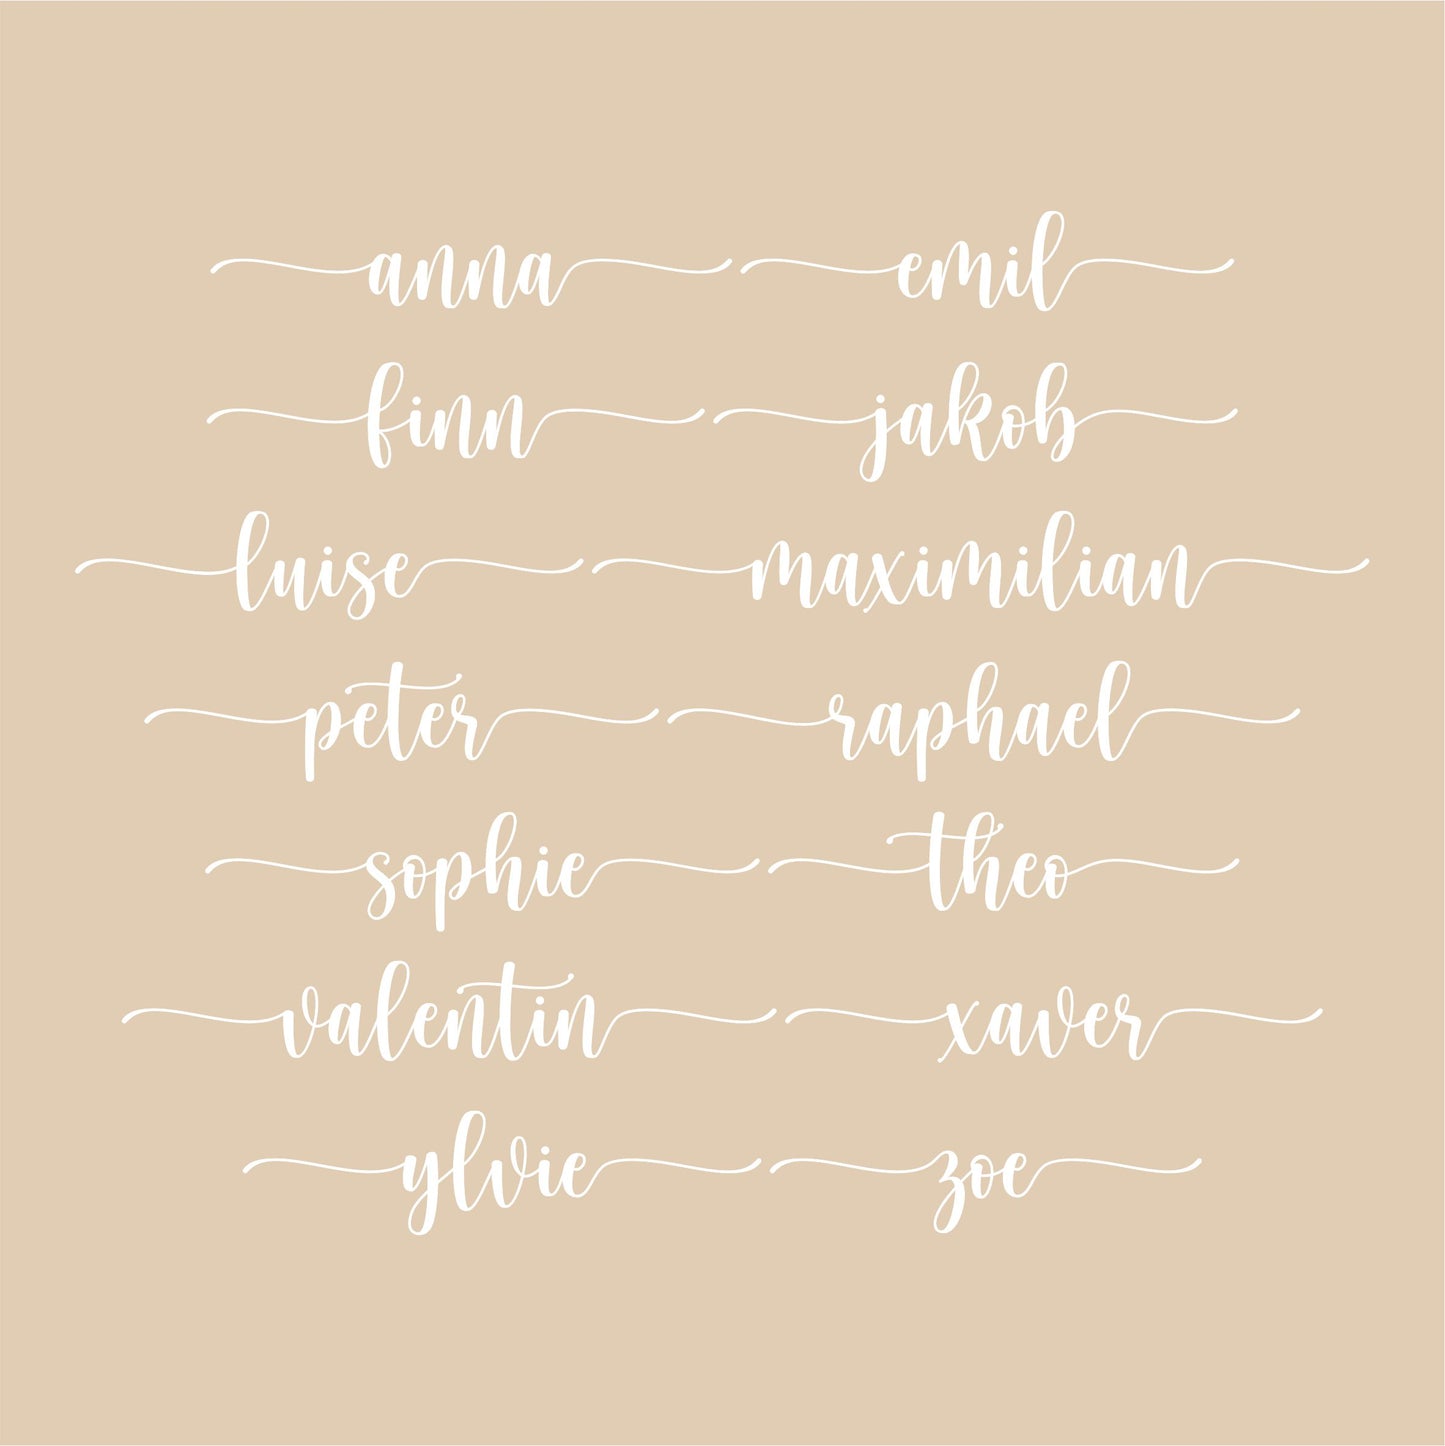 anna emil
finn jakob
luise maximilian
peter raphael
sophie theo
valentin xaver
ylvie zoe